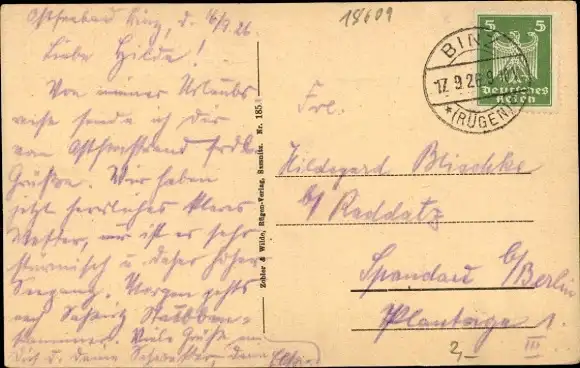 18609
Ostseebad Binz, d. 16/9. 26
Liebe Hilde!
Von meiner Urlaubs
reise sende ich Dir
vom Ostseestrand frdl.
Grüsse. Wir haben
jetzt herrliches klares
Wetter, nur ist es sehr
stürmisch u. daher hoher
Seegang. Morgen gehts
nach Sassnitz Stubben-
kammer. Viele Grüße an
Dich u. Deine Schwester, Deine
Zobler & Wilde, Rügen-Verlag, Sassnitz. Nr. 185
5 5
Deutsches
Reich
BINZ
17.9.26
*(RÜGEN)
Frl.
Hildegard Blischke
b/ Raddatz
Spandau b/Berlin
Plantage 1.
2,-
III